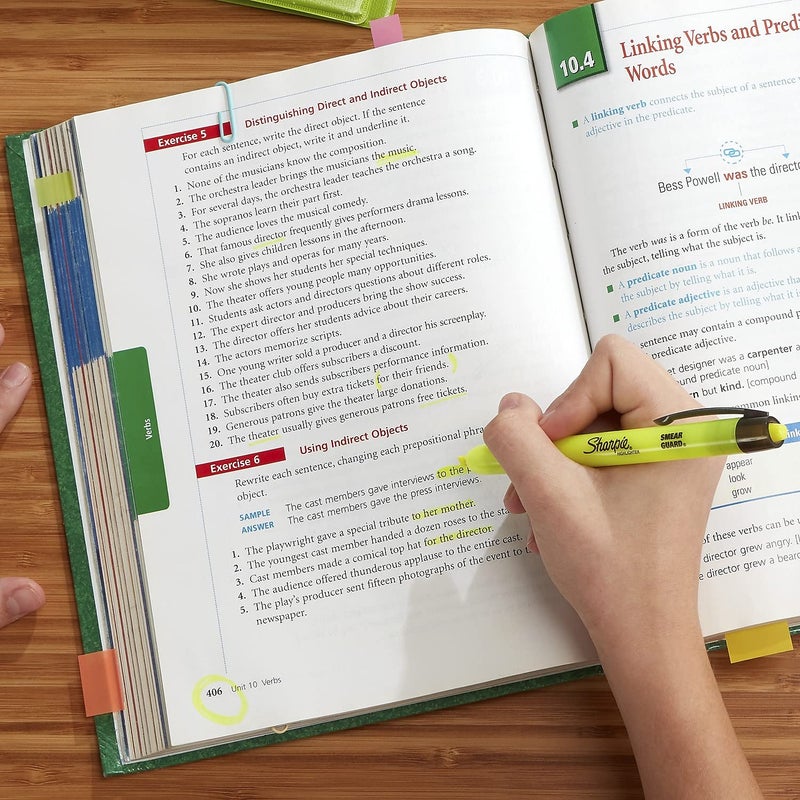 Exercise 5 Distinguishing Direct and Indirect Objects
For each sentence, write the direct object. If the sentence
contains an indirect object, write it and underline it.
1. None of the musicians know the composition.
2. The orchestra leader brings the musicians the music.
3. For several days, the orchestra leader teaches the orchestra a song.
4. The sopranos learn their part first.
5. The audience loves the musical comedy.
6. That famous director frequently gives performers drama lessons.
7. She also gives children lessons in the afternoon.
8. She wrote plays and operas for many years.
9. Now she shows her students her special techniques.
10. The theater offers young people many opportunities.
11. Students ask actors and directors questions about different roles.
12. The expert director and producers bring the show success.
13. The director offers her students advice about their careers.
14. The actors memorize scripts.
15. One young writer sold a producer and a director his screenplay.
16. The theater club offers subscribers a discount.
17. The theater also sends subscribers performance information.
18. Subscribers often buy extra tickets for their friends.
19. Generous patrons give the theater large donations.
20. The theater usually gives generous patrons free tickets.
Exercise 6 Using Indirect Objects
Rewrite each sentence, changing each prepositional
object.
SAMPLE The cast members gave interviews to the
ANSWER The cast members gave the press interviews.
1. The playwright gave a special tribute to her mother.
2. The youngest cast member handed a dozen roses to the
3. Cast members made a comical top hat for the director.
4. The audience offered thunderous applause to the entire cast.
5. The play's producer sent fifteen photographs of the event to
newspaper.
406 Unit 10 Verbs
Verbs
10.4 Linking Verbs and
Words
A linking verb connects the subject of a sentence
adjective in the predicate.
Bess Powell was the
LINKING VERB
The verb was is a form of the verb be. It
the subject, telling what the subject is.
A predicate noun is a noun that follows
the subject by telling what it is.
A predicate adjective is an adjective that
describes the subject by telling what it is
sentence may contain a compound
predicate adjective.
designer was a carpenter
predicate noun]
but kind. [compound
linking
appear
look
grow
of these verbs can be
director grew angry.
director grew a
Sharpie
HIGHLIGHTER
SMEAR
GUARD